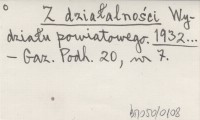 Z działalności Wy-
działu powiatowego. 1932...
– Gaz. Podh. 20, nr 7.